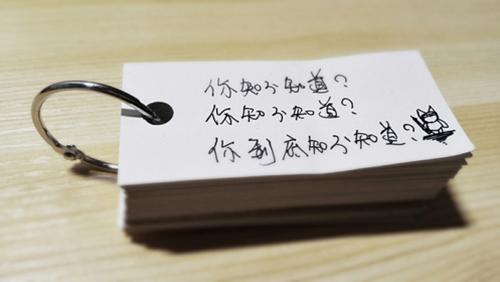 你知不知道？
你知不知道？
你到底知不知道？